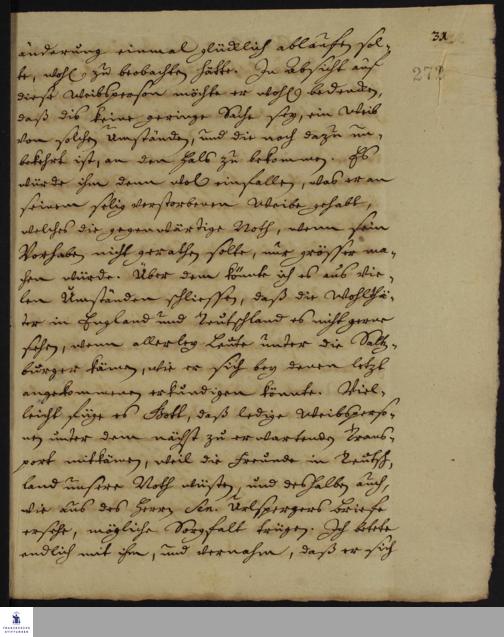 31
273
änderung einmal glücklich ablaufen sol-
te, wohl zu beobachten hätte. In Absicht auf
diese Weibsperson möchte er wohl bedencken,
daß dis keine geringe Sache sey, ein Weib
von solchen Umständen, und die noch dazu un-
bekehrt ist, an den Hals zu bekommen. Es
würde ihm denn wol einfallen, was er an
seinem selig verstorbenen Weibe gehabt,
welches die gegenwärtige Noth, wenn sein
Vorhaben nicht gerathen solte, nur grösser ma-
chen würde. Über dem könnte ich es aus vie-
len Umständen schliessen, daß die Wohlthä-
ter in England und Teutschland es nicht gerne
sehen, wenn allerley Leute unter die Saltz-
burger kämen, wie er sich bey denen letzt
angekommenen erkundigen könnte. Viel-
leicht füge es Gott, daß ledige Weibsperso-
nen unter dem nächst zu erwartenden Trans-
port mitkämen, weil die Freunde in Teutsch-
land unsere Noth wüsten, und deshalben auch,
wie aus des Herrn Sen. Urlspergers Briefe
ersehe, mögliche Sorgfalt trügen. Ich betete
endlich mit ihm, und vernahm, daß er sich
FRANCKESCHE
STIFTUNGEN